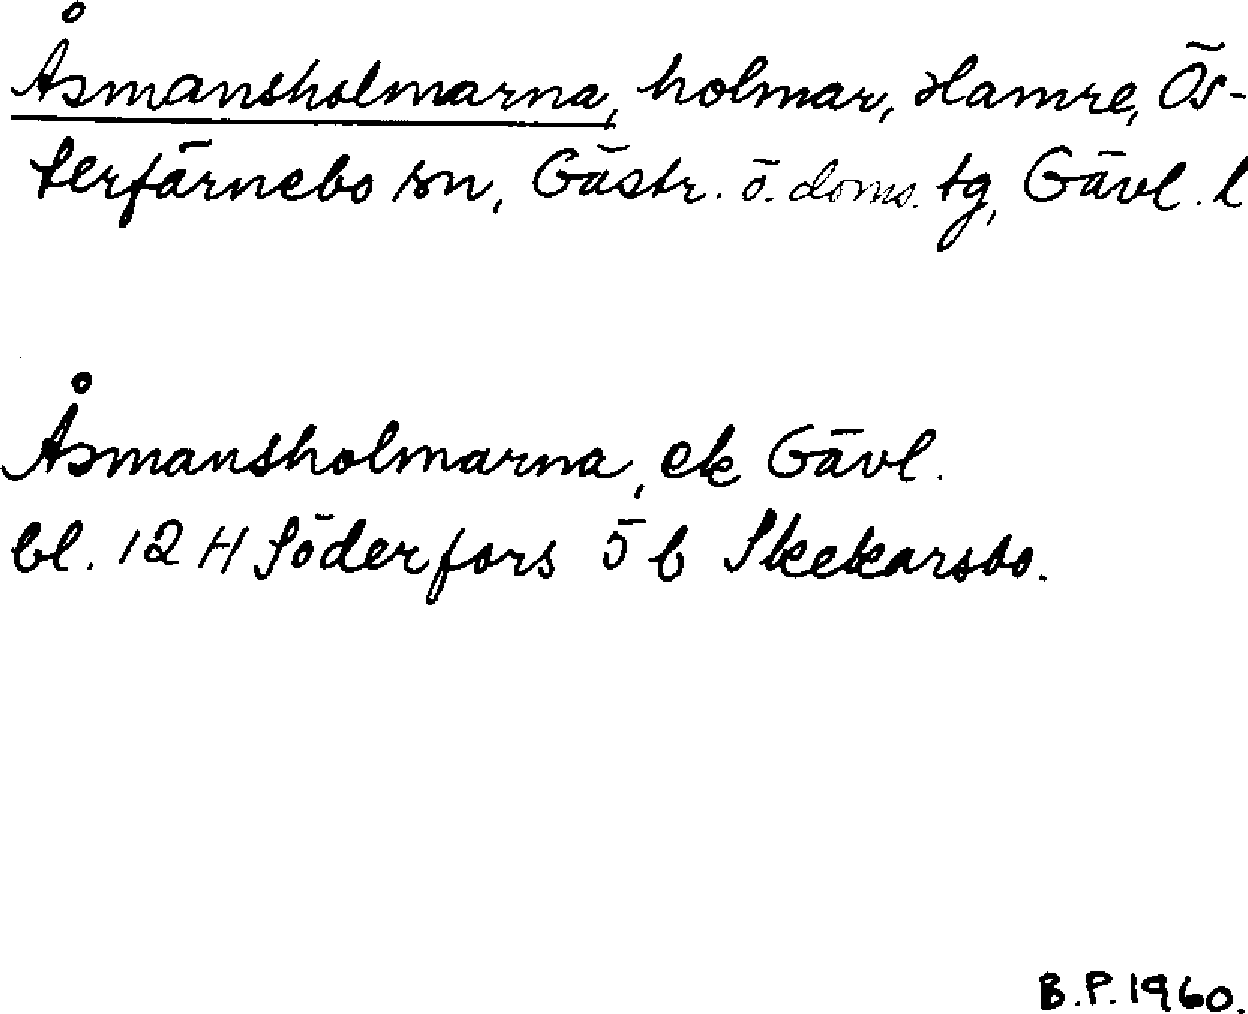 Åsmansholmarna, holmar, Hamre, Ös-
terfärnebo sn, Gästr. ö. doms. tg, Gävl. l
Åsmansholmarna, ek Gävl.
bl. 12 H Söderfors 5 b Skekarsbo.
B.P. 1960.